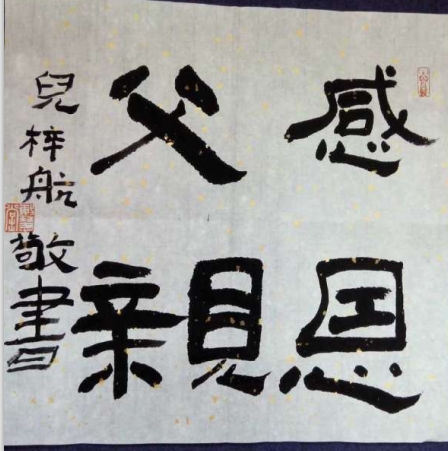 感恩
父親
兒梓航敬書